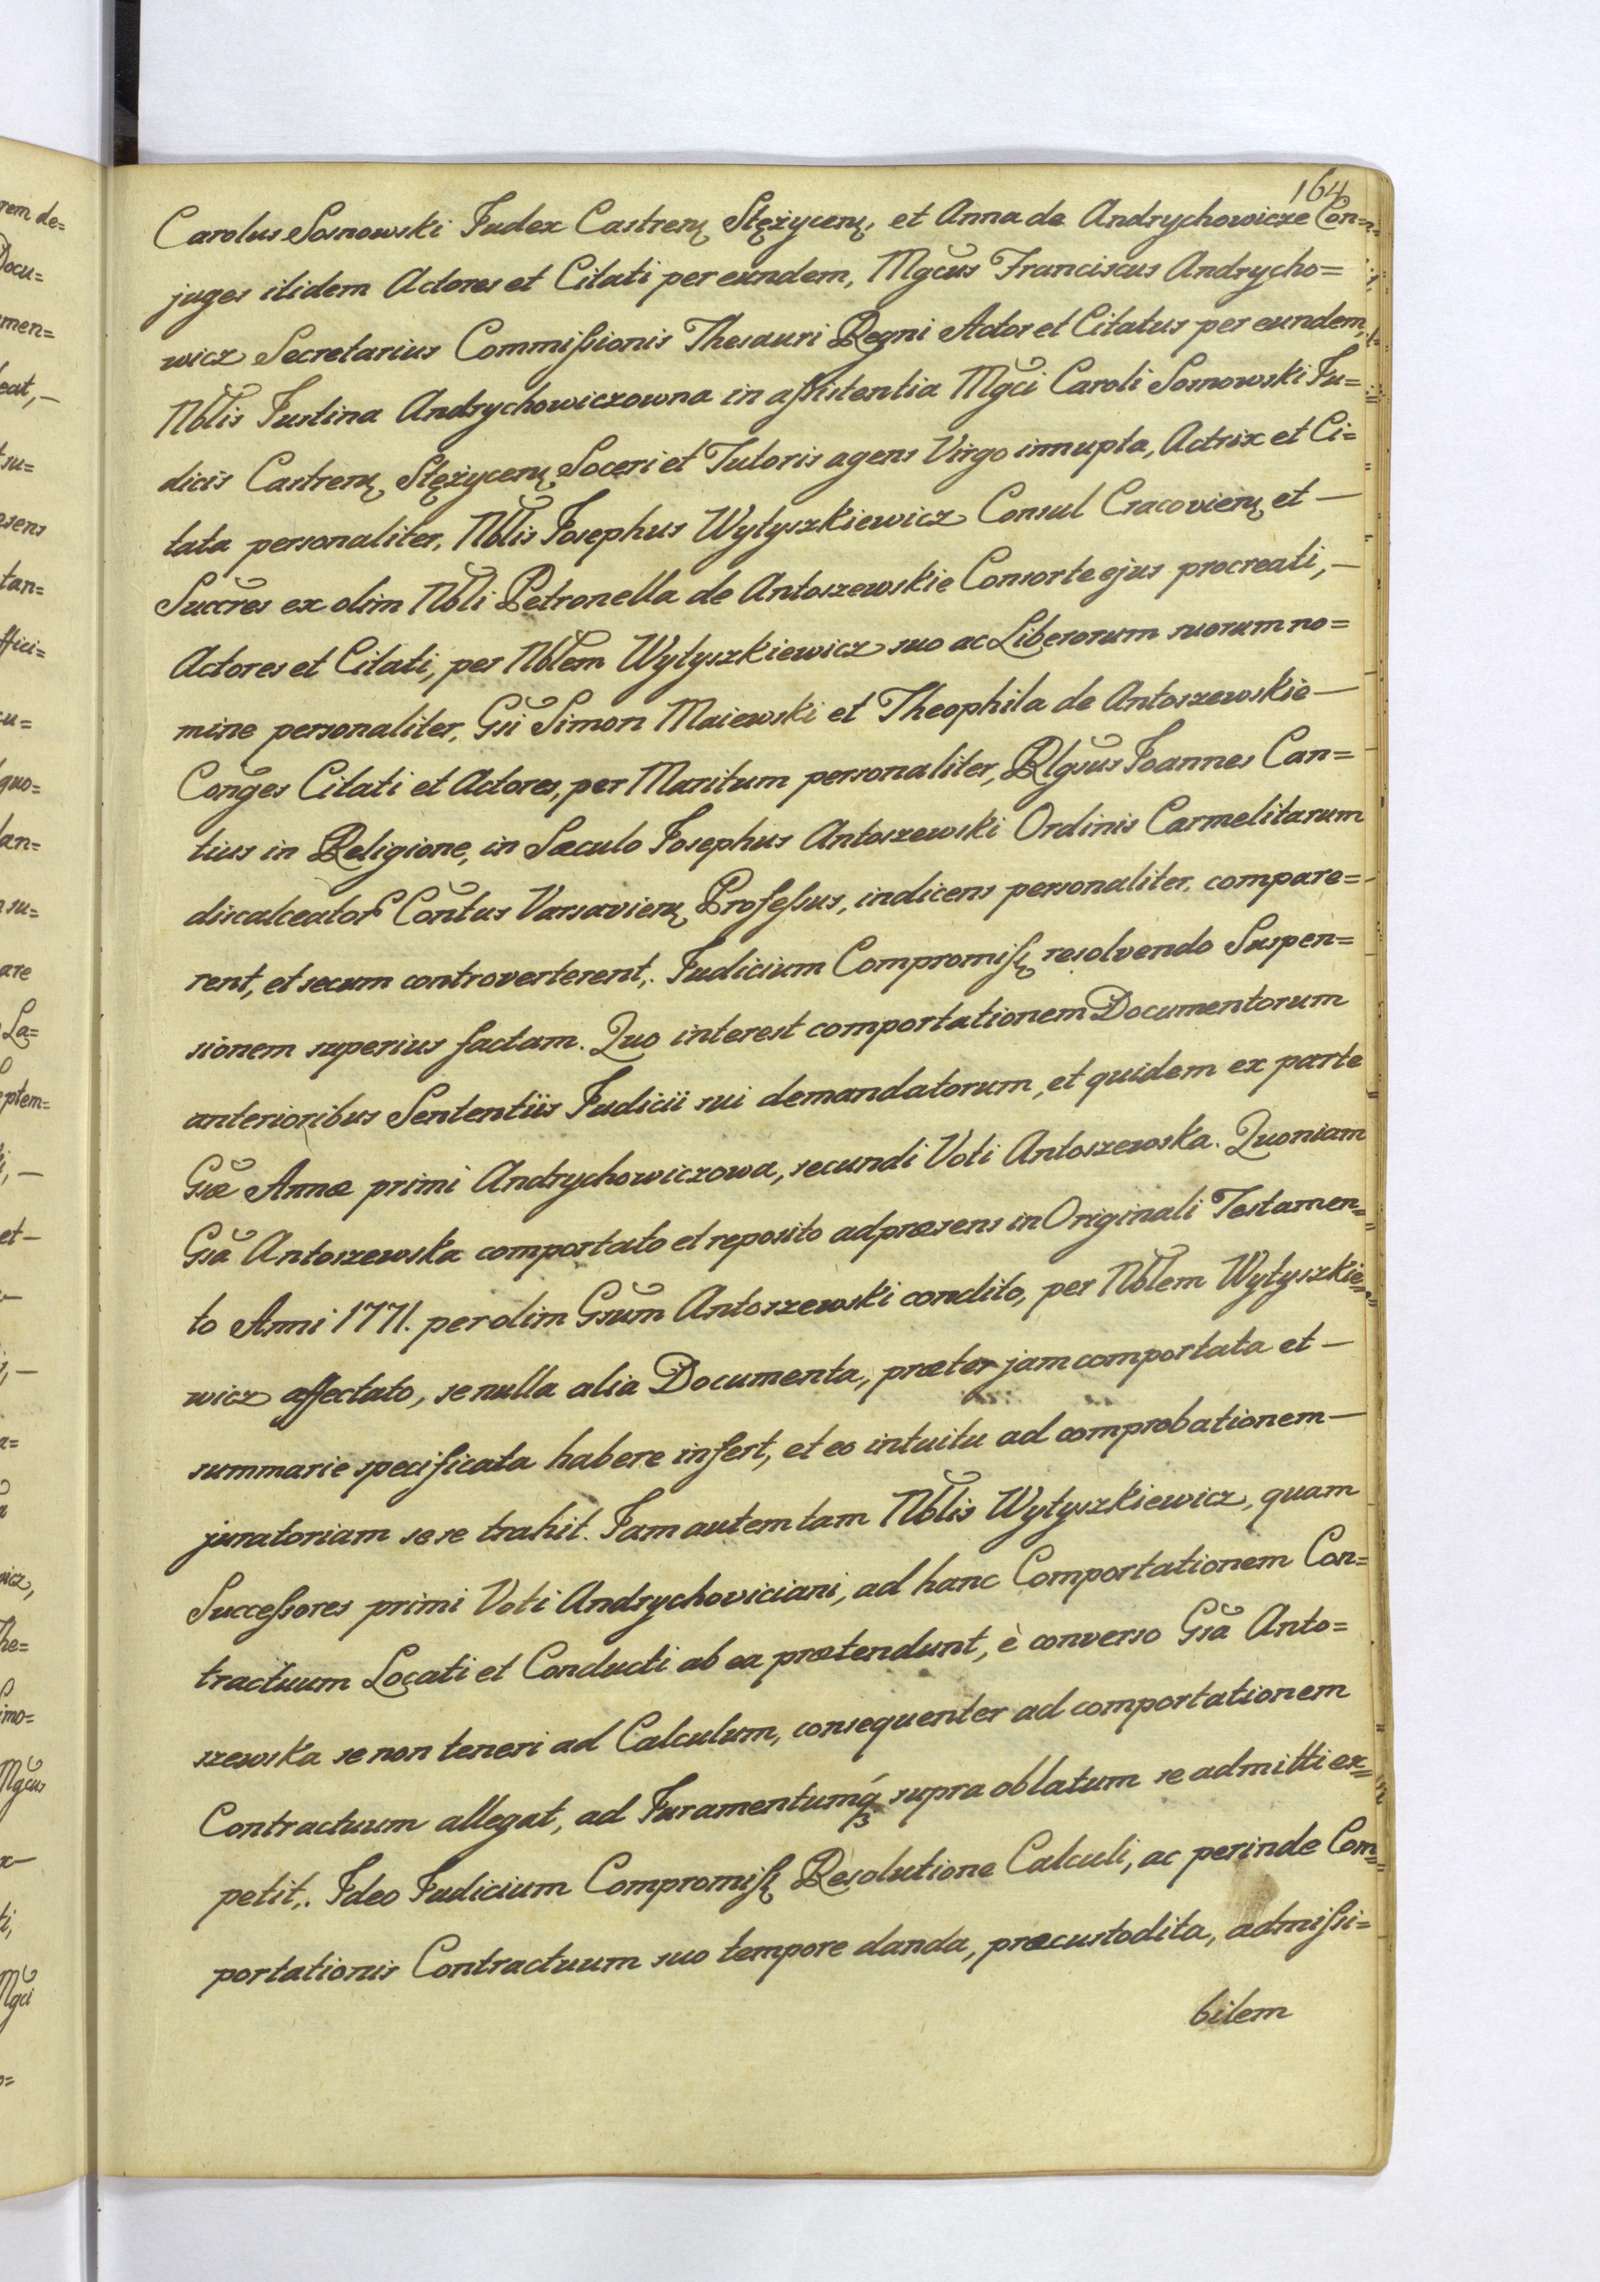 164
Carolus Sosnowski Judex Castren Stężycen, et Anna de Andrychowicze Con=
juges itidem Actores et Citati per eundem, Mgcus Franciscus Andrycho=
wicz Secretarius Commissionis Thesauri Regni Actor et Citatus per eundem,
Nblis Justina Andrychowiczowna in assistentia Mgci Caroli Sosnowski Ju=
dicis Castren Stężycen Soceri et Tutoris agens Virgo innupta, Actrix et Ci=
tata personaliter, Nblis Josephus Wytyszkiewicz Consul Cracovien et —
Succres ex olim Nbli Petronella de Antoszewskie Consorte ejus procreati, —
Actores et Citati, per Nblem Wytyszkiewicz suo ac Liberorum suorum no=
mine personaliter, Gsi Simon Maiewski et Theophila de Antoszewskie —
Conges Citati et Actores, per Maritum personaliter, Rlgsus Joannes Can=
tius in Religione, in Sæculo Josephus Antoszewski Ordinis Carmelitarum
discalceator Contus Varsavien Professus, indicens personaliter, compare=
rent, et secum controverterent, Judicium Compromiss resolvendo Suspen=
sionem superius factam. Quo interest comportationem Documentorum
anterioribus Sententiis Judicii sui demandatorum, et quidem ex parte
Gsæ Annæ primi Andrychowiczowa, secundi Voti Antoszewska. Quoniam
Gsa Antoszewska comportato et reposito ad præsens in Originali Testamen=
to Anni 1771. per olim Gsum Antoszewski condito, per Nblem Wytyszkie=
wicz affectato, se nulla alia Documenta, præter jam comportata et —
summarie specificata habere infert, et eo intuitu ad comprobationem —
juratoriam se se trahit. Jam autem tam Nblis Wytyszkiewicz, quam
Successores primi Voti Andrychoviciani, ad hanc Comportationem Con=
tractuum Locati et Conducti ab ea prætendunt, è converso Gsa Anto=
szewska se non teneri ad Calculum, consequenter ad comportationem
Contractuum allegat, ad Juramentumq supra oblatum se admitti ex=
petit,. Ideo Judicium Compromiss Resolutione Calculi, ac perinde Com=
portationis Contractuum suo tempore danda, præcustodita, admissi=
bilem